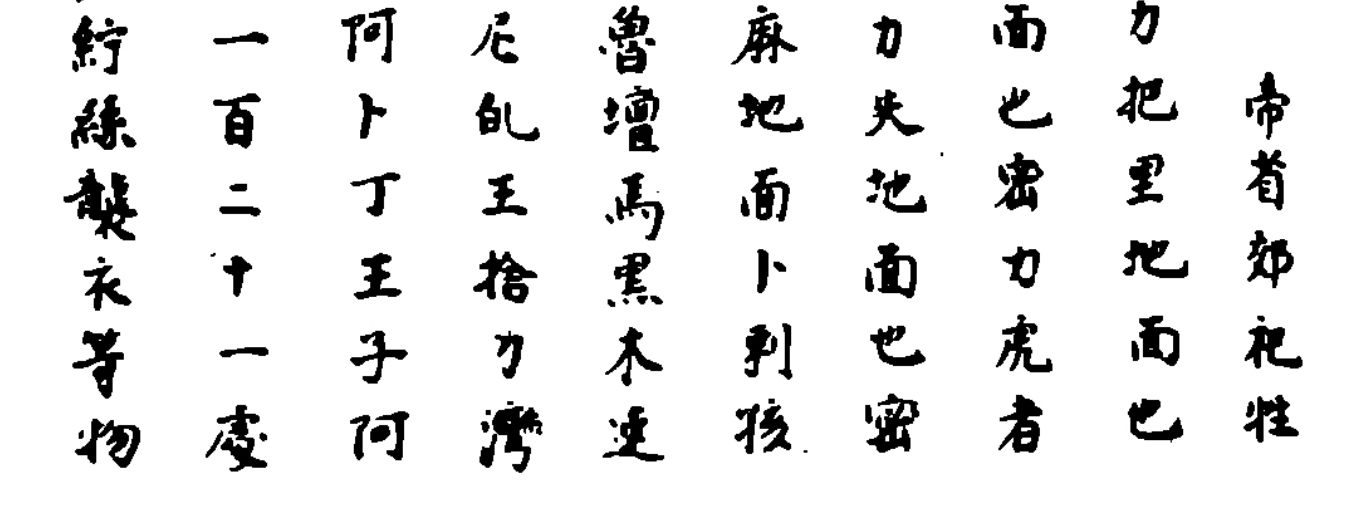 帝省郊祀牲
力把里地面也
面也密力虎者
力失地面也密
麻地面卜剌孩
魯壇馬黑木速
尼癿王捨力灣
阿卜丁王子阿
一百二十一處
紵絲襲衣等物